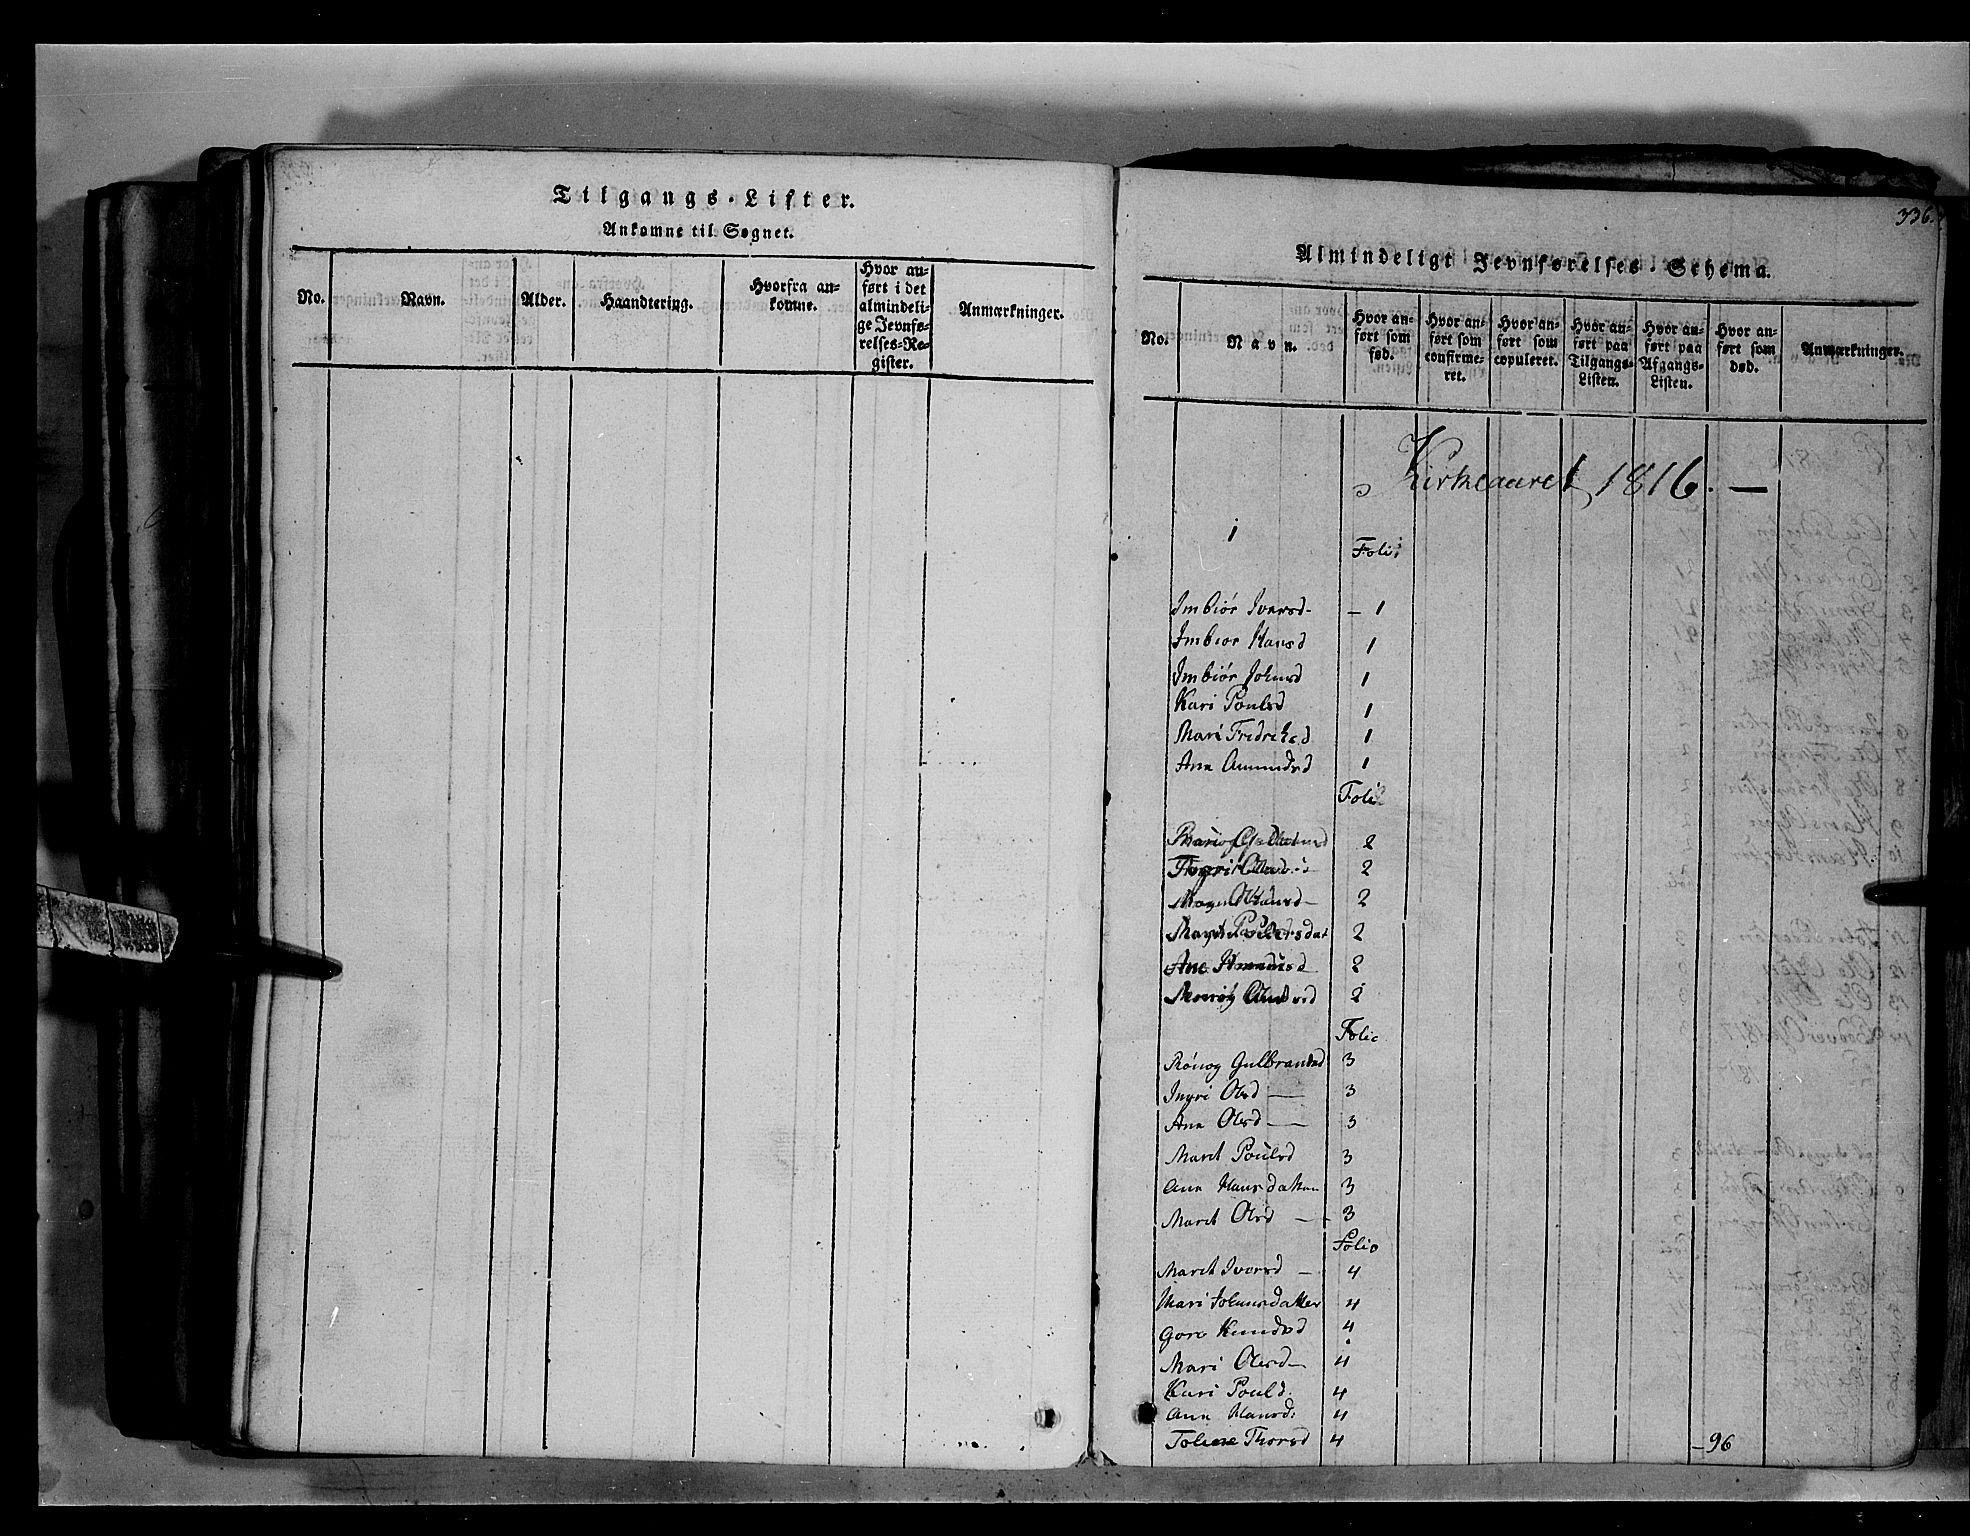 Tilgangs-Lister.
Ankomne til Sognet.
No.
Navn.
Alder.
Haandtering.
Hvorfra an-
komne.
Hvor an-
ført i det
almindeli-
ge Jevnfø-
relses-Re-
gister.
Anmærkninger.
336.
Almindeligt Jevnførelses-Schema.
No.
Navn.
Hvor an-
ført som
fød.
Hvor an-
ført som
confirme-
ret.
Hvor an-
ført som
copuleret.
Hvor an-
ført paa
Tilgangs-
Listen.
Hvor an-
ført paa
Afgangs-
Listen.
Hvor an-
ført som
død.
Anmærkninger.
Kirkeaaret 1816. —
1
Folio
Imbiør Iversd- — 1
Imbiør Hansd 1
Imbiør Johnsd 1
Kari Poulsd 1
Mari Fredriksd 1
Ane Amundsd 1
Folio
2
2
2
Marit Pedersdat 2
Ane 2
2
Folio
Rønog Gulbrandsd 3
Ingri Olsd — 3
Ane Olsd — 3
Marit Poulsd 3
Ane Hansdatter 3
Marit Olsd — 3
Folio
Marit Iversd — 4
Mari Johnsdatter 4
Goro Knudsd 4
Mari Olsd— 4
Kari Pould. 4
Ane Hansd: 4
Tolene Thorsd 4 —96